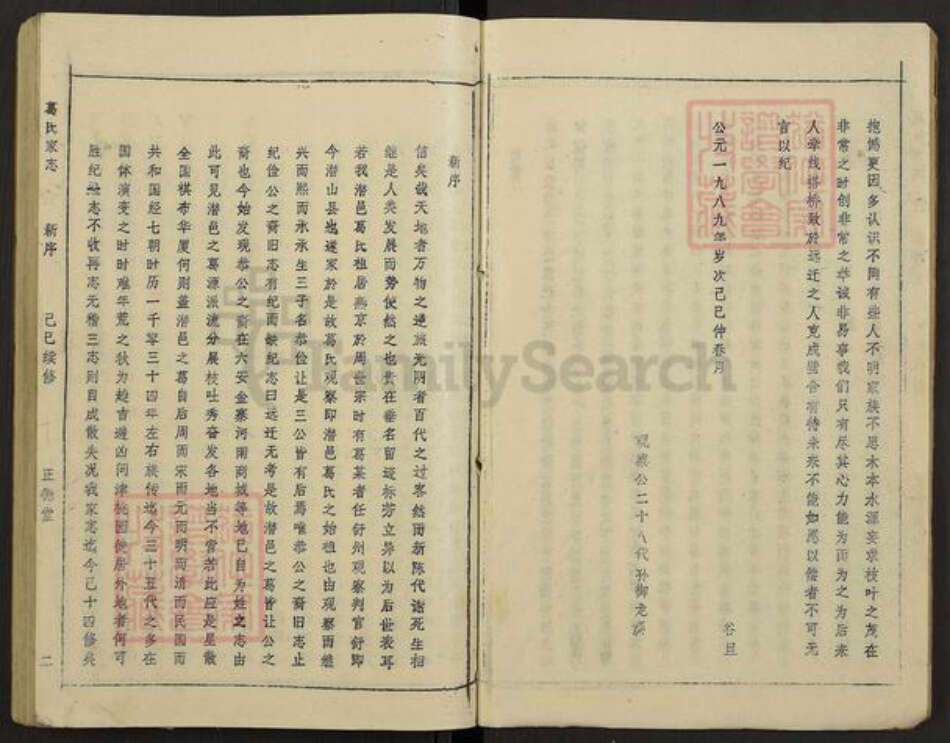 抱憾更因多认识不同有些人不明家族不思木本水源妄求枝叶之茂在
非常之时创非常之举诚非易事我们只有尽其心力能为而为之为后来
人牵线搭桥致于远迁之人克成璧合有待未来不能如愿以偿者不可无
言以纪
公元一九八九年岁次己巳仲春月
谷旦
观察公二十八代孙御龙撰
新序
信矣哉天地者万物之逆旅光阴者百代之过客然而新陈代谢死生相
继是人类发展而势使然之也贵在垂名留迹标芳立异以为后世表耳
若我潜邑葛氏祖居燕京于周世宗时有葛某者任舒州观察判官舒即
今潜山县也遂家于是故葛氏观察即潜邑葛氏之始祖也由观察而继
兴而熙而永永生三子名恭俭让是三公皆有后焉唯恭公之裔旧志止
纪俭公之裔旧志有纪而缺纪志曰远迁无考是故潜邑之葛皆让公之
裔也今始发现恭公之裔在六安金寨河南商城等地已自为姓之志由
此可见潜邑之葛源派流分展枝吐秀奋发各地当不啻若此应是星散
全国棋布华厦何则盖潜邑之葛自后周而宋而元而明而清而民国而
共和国经七朝时历一千零三十四年左右族传迄今三十五代之多在
国体演变之时时难年荒之秋为趋吉避凶问津桃园徙居外地者何可
胜纪一志不收再志无稽三志则自成散失况我家志迄今已十四修矣
葛氏家志
新序
己巳续修
正伦堂
二
FamilySearch